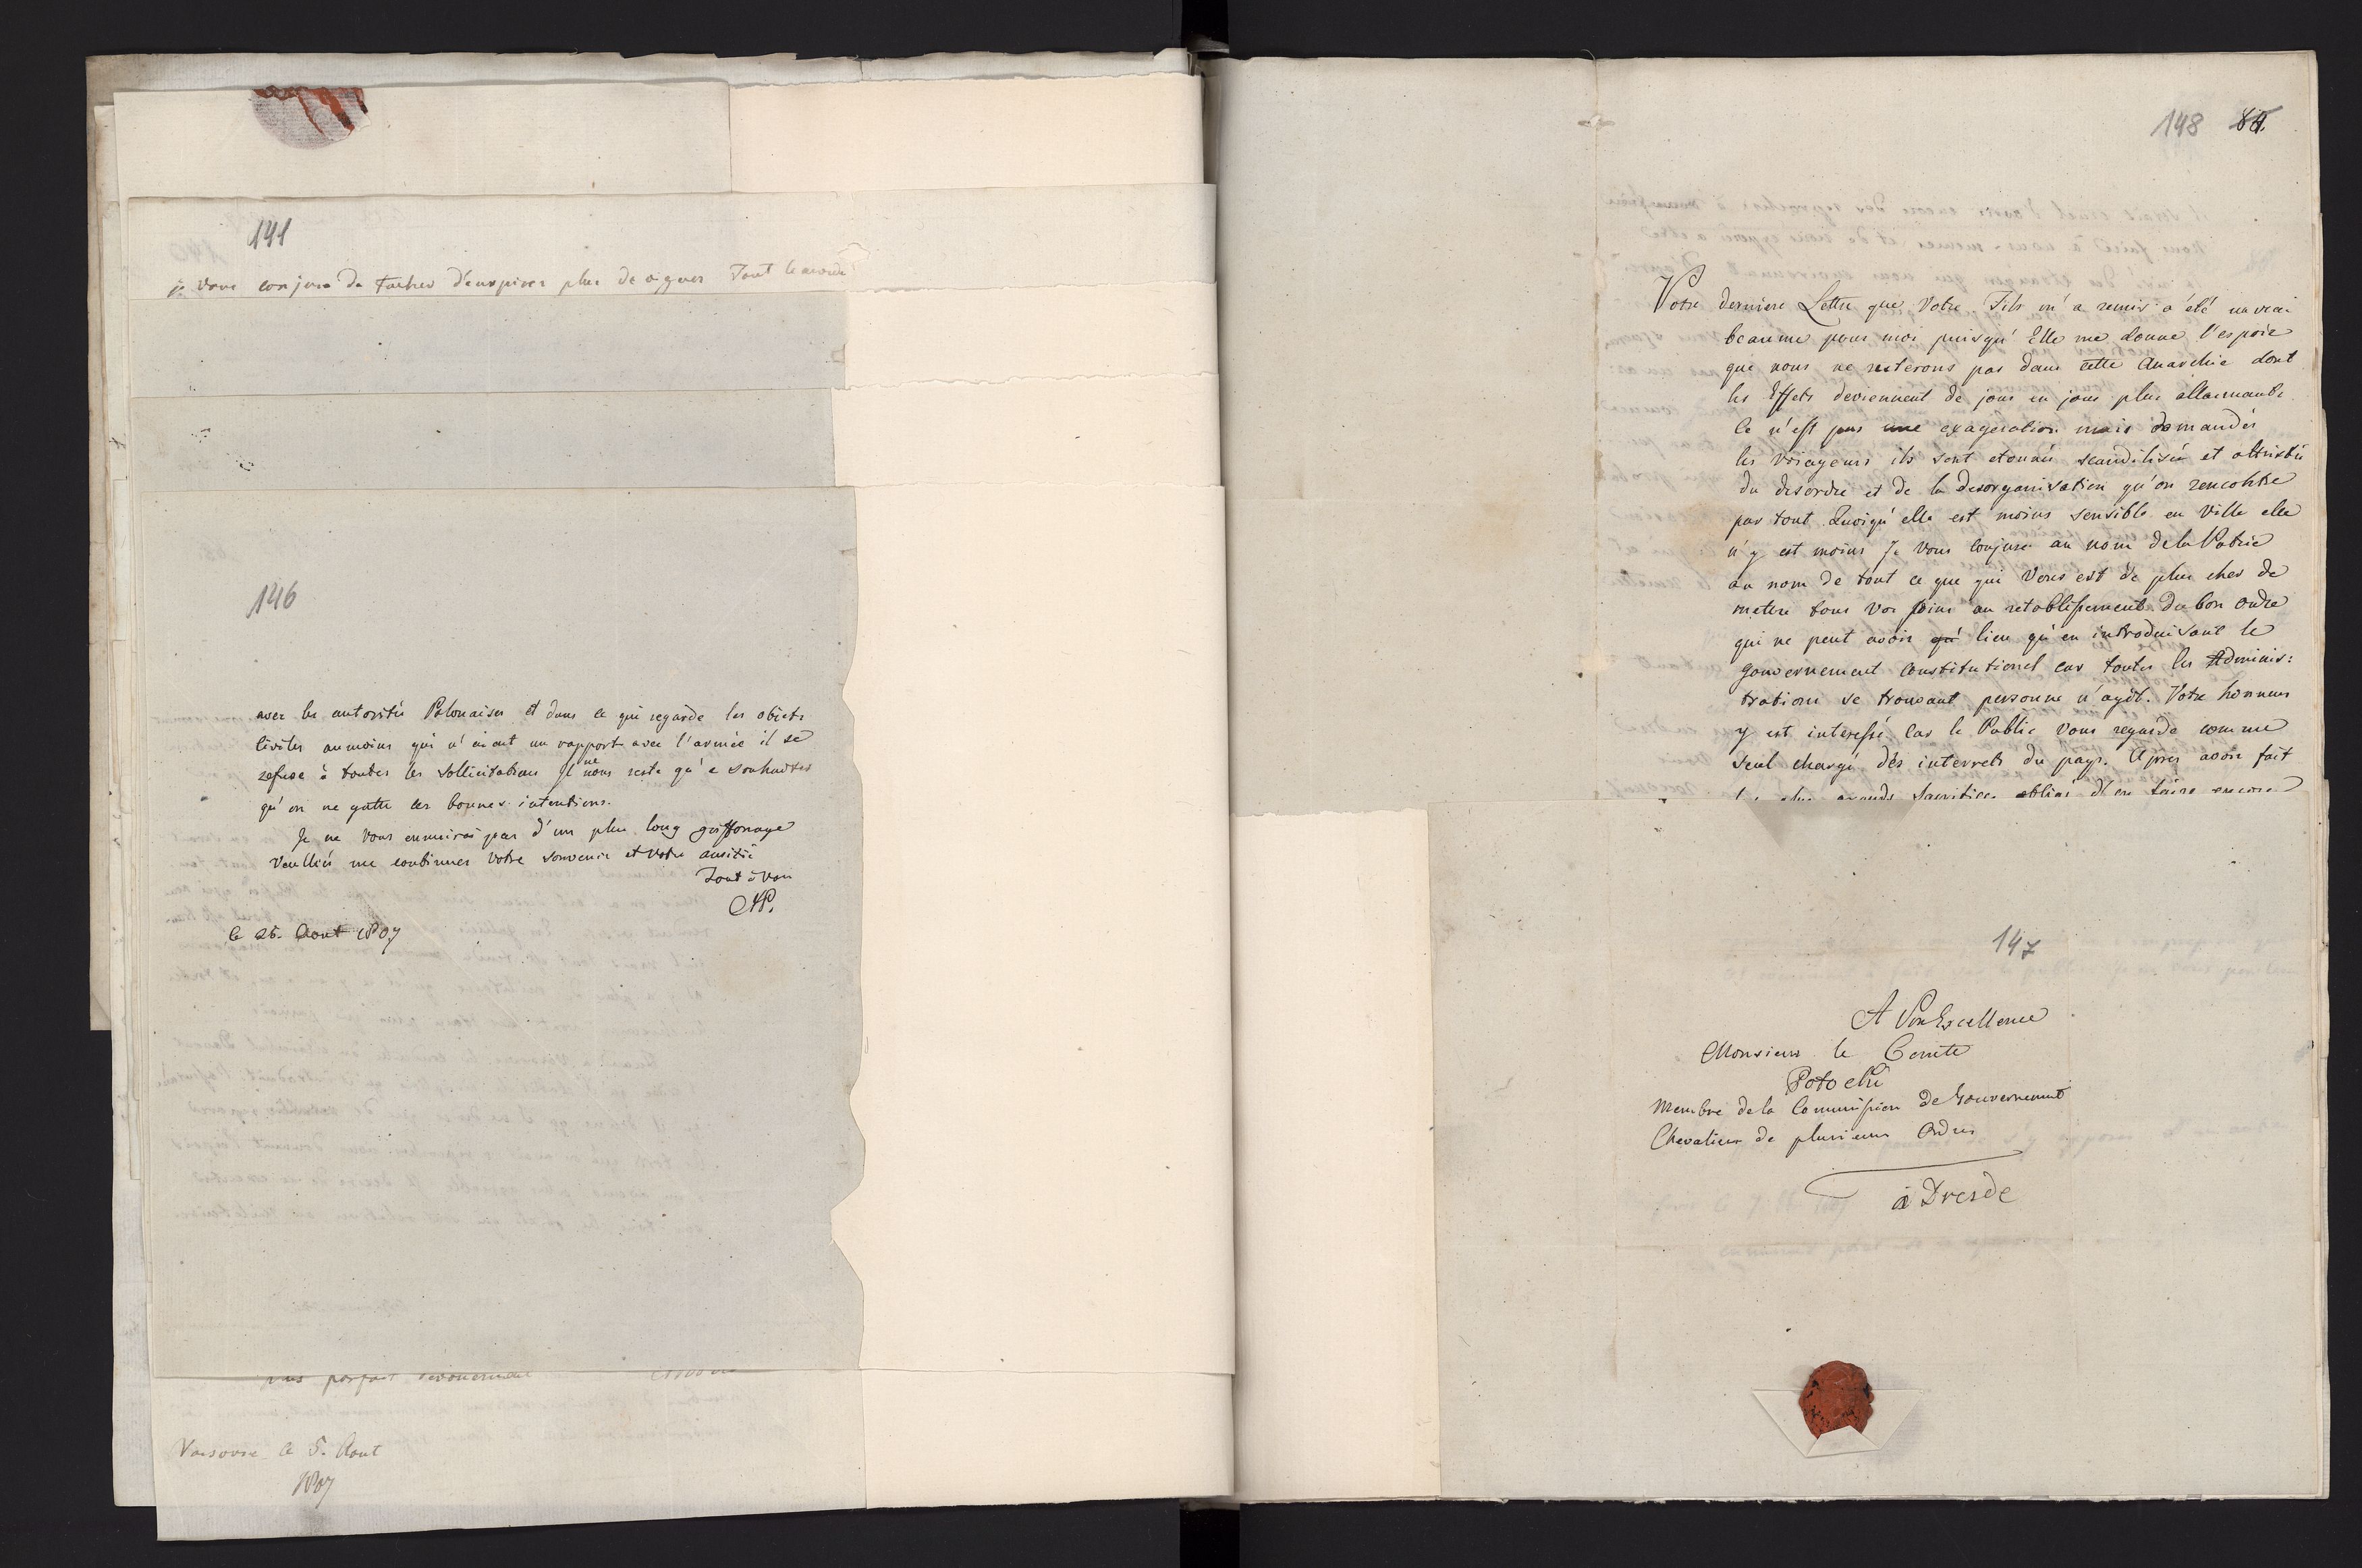 141
je vous conjure de tacher d'inspirer plus de vigueur Tout le monde
146
avec les autorités Polonaises et dans ce qui regarde les objets
civiles aumoins qui n'aient un rapport avec l'armée il se
refuse à toutes les sollicitations Il ne nous reste qu'a souhaiter
qu'on ne gatte ces bonnes intentions.
Je ne vous ennuirai pas d'un plus long griffonage
Veulliés me continuer votre souvenir et votre amitié
Tout à Vous
le 25. Aout 1807
plus parfait devouement
Varsovie le 5. Aout
1807
148 84.
Votre derniere Lettre que Votre Fils m'a remis a été un vrai
beaume pour moi puisqu'Elle me donne l'espoir
que nous ne resterons pas dans cette Anarchie dont
les Effets deviennent de jour en jour plus allarmants
Ce n'est pas une exageration mais demandés
les Voiageurs ils sont etonnés scandilisés et attristés
du desordre et de la desorganisation qu'on rencontre
par tout Quoiqu'elle est moins sensible en Ville elle
n'y est moins Je Vous conjure au nom de la Patrie
au nom de tout ce que qui Vous est de plus cher de
metre tous vos soins au retablissement du bon ordre
qui ne peut avoir qu' lieu qu'en introduisant le
gouvernement constitutionel car toutes les Adminis:
trations se trouvant personne n'agit. Votre honneur
y est interessé car le Public vous regarde comme
seul chargé des interrets du pays. Apres avoir fait
les plus grands sacrifices obligé d'en faire encore
147
A Son Excellence
Monsieur le Comte
Potocki
Membre de la Commission de Gouvernement
Chevalier de plusieurs Ordres
à Dresde